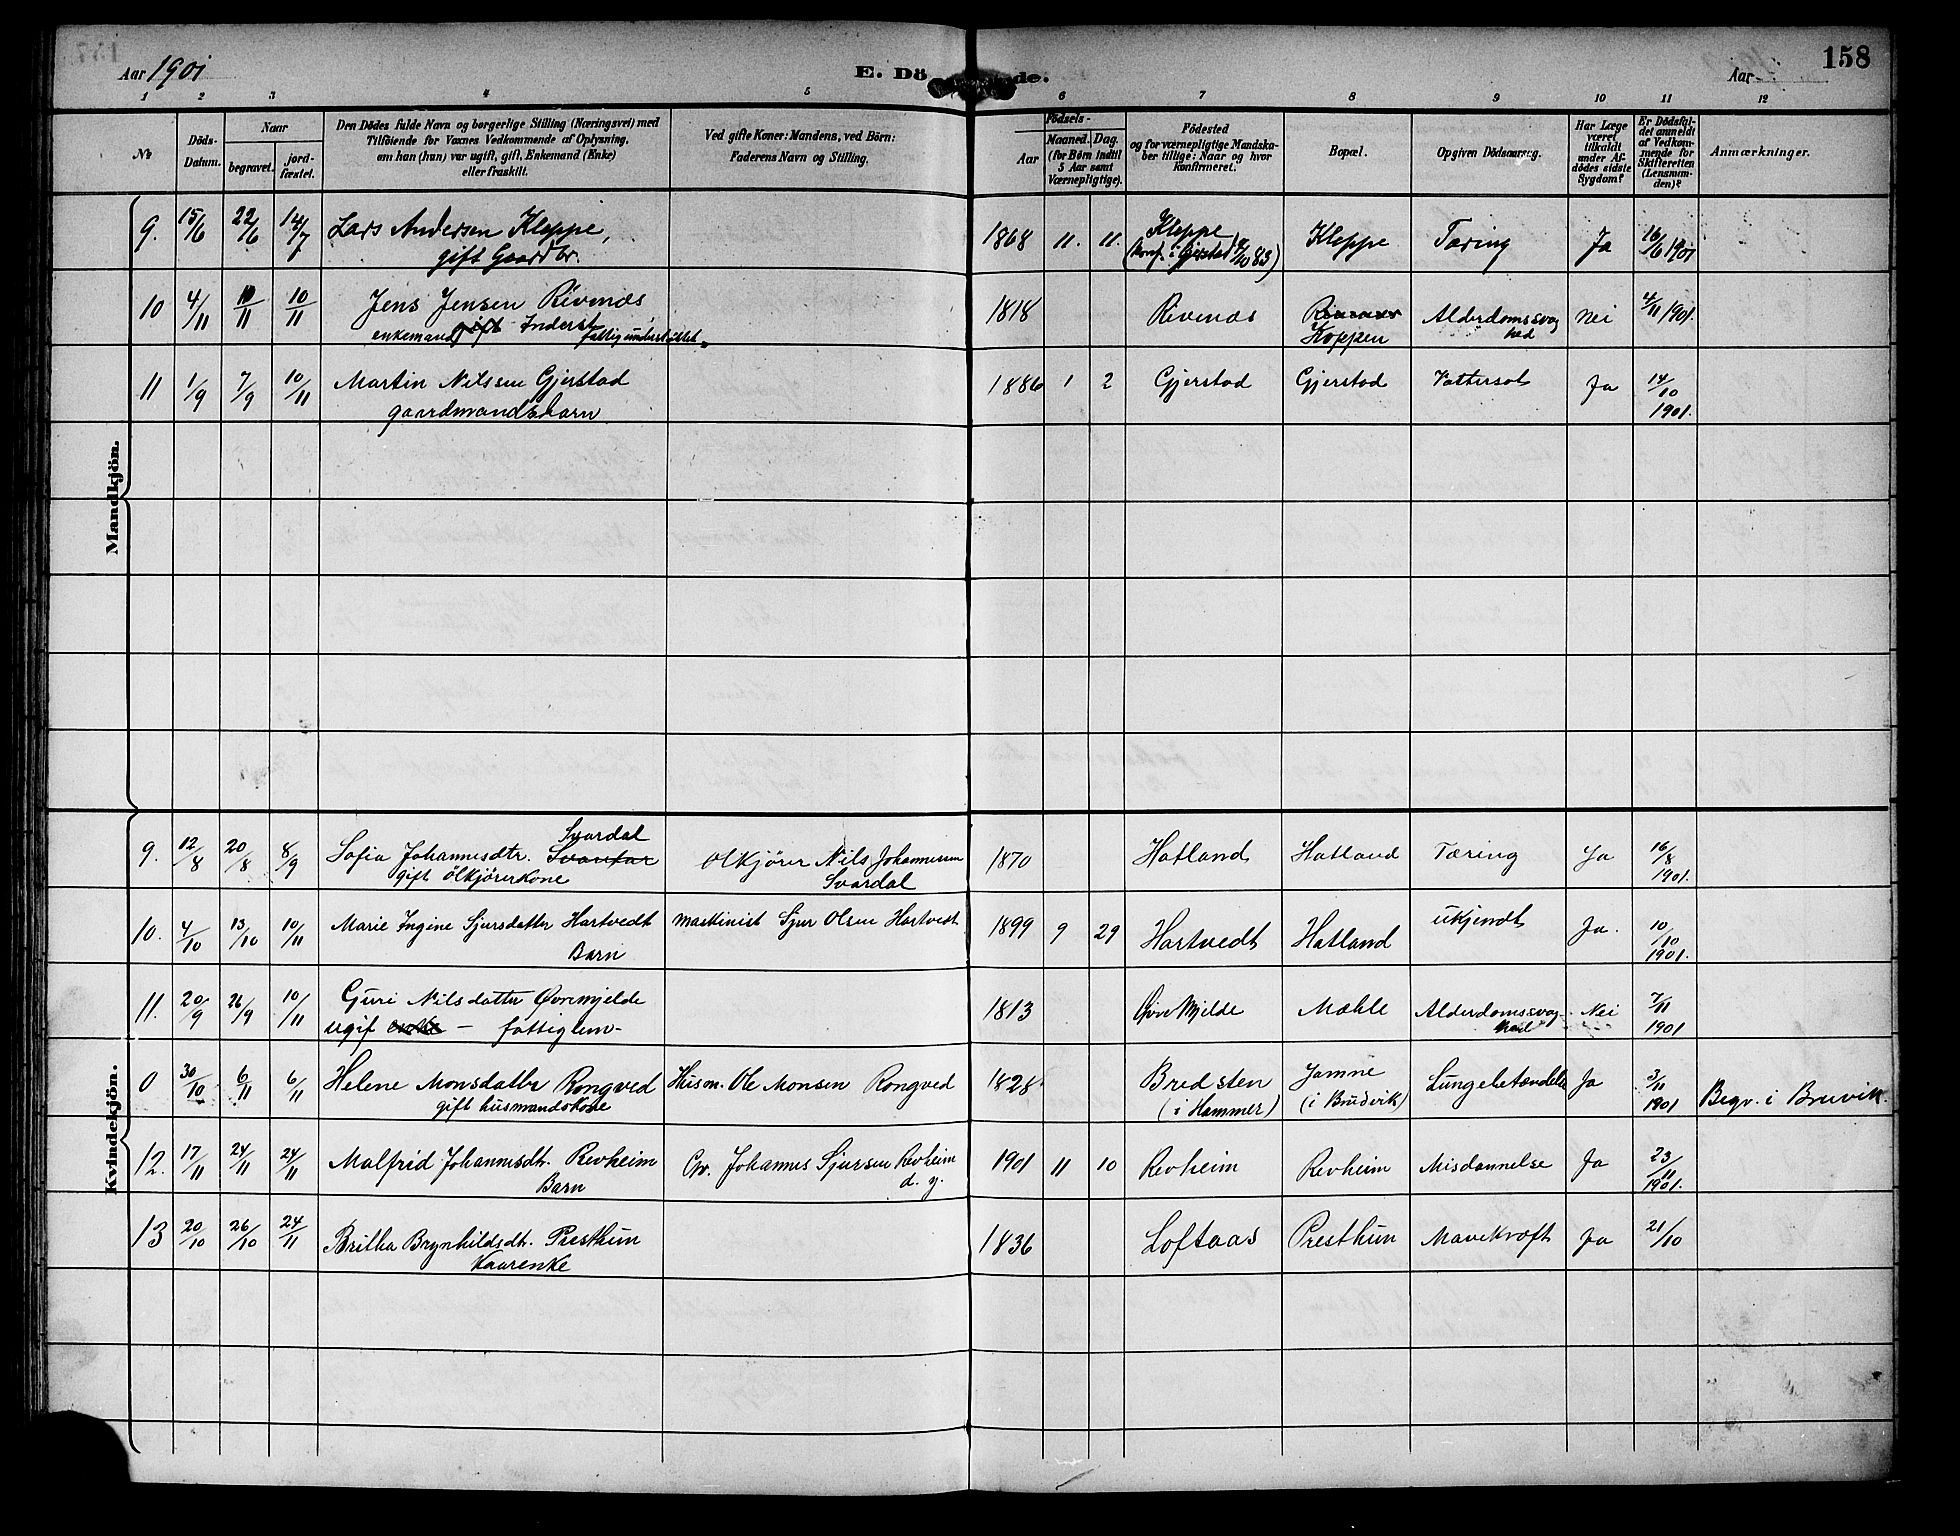 Aar 1901
E. Dö de.
Aar
158
1 2 3 4 5 6 7 8 9 10 11 12
№
Döds-Datum.
Naar
begravet.
jord-fæstet.
Den Dödes fulde Navn og borgerlige Stilling (Næringsvei) med
Tilföiende for Voxnes Vedkommende af Oplysning,
om han (hun) var ugift, gift, Enkemand (Enke)
eller fraskilt.
Ved gifte Koner: Mandens, ved Börn:
Faderens Navn og Stilling.
Födsels-
Aar
Maaned. Dag.
(for Börn indtil
5 Aar samt
Værnepligtige).
Födested
og for værnepligtige Mandska-
ber tillige: Naar og hvor
konfirmeret.
Bopæl.
Opgiven Dödsaarsag.
Har Læge
været
tilkaldt
under Af-
dödes sidste
Sygdom?
Er Dödsfal-
det anmeldt
af Vedkom-
mende for
Skifteretten
(Lensman-
den)?
Anmærkninger.
Mandkjön.
9. 15/6 22/6 14/7 Lars Andersen Kleppe, 1868 11. 11. Kleppe Kleppe Tæring Ja 16/6 1901
gift Gaardbr. (konf. i Gjerstad 7/10 83)
10 4/11 10/11 10/11 Jens Jensen Rivenæs 1818 Rivenæs Rivenæs Alderdomssvag Nei 4/11 1901.
enkemand gift Inderst fattigunderstöttet. Koppen hed
11 1/9 7/9 10/11 Martin Nilsen Gjerstad 1886 1 2 Gjerstad Gjerstad Vattersot Ja 14/10
gaardmandsbarn 1901.
Kvindekjön.
Svardal
9. 12/8 20/8 8/9 Sofia Johannesdtr. Ølkjører Nils Johannesen 1870 Hatland Hatland Tæring Ja 16/8
gift ölkjörerkone Svardal 1901.
10. 4/10 13/10 10/11 Marie Ingine Sjursdatter Hartvedt Maskinist Sjur Olsen Hartvedt 1899 9 29 Hartvedt Hatland ukjendt Ja. 10/10
Barn 1901.
11. 20/9 26/9 10/11 Guri Nilsdatter Øvremjelde 1813 Øvre Mjelde Mæhle Alderdomssvag- Nei 7/11
ugif enke – fattiglem – hed 1901
0 30/10 6/11 6/11 Helene Monsdatter Rongved Husm. Ole Monsen Rongved 1828. Bredsten Jamne Lungebetændelse Ja 3/11
gift husmandskone (i Hammer) (i Brudvik) 1901 Begr. i Bruvik.
12. 17/11 24/11 24/11 Malfrid Johannesdt. Revheim Gr. Johannes Sjursen Revheim 1901 11 10 Revheim Revheim Misdannelse Ja 23/11
Barn d. y. 1901.
13 20/10 26/10 24/11 Britha Brynhildsdt. Presthun 1836 Loftaas Presthun Mavekræft Ja 21/10
Kaarenke